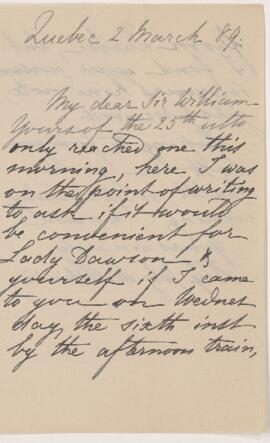 Quebec 2 March 89.
My dear Sir William
Yours of the 25th ulto
only reached me this
morning, here I was
on the point of writing
to ask if it would
be convenient for
Lady Dawson &
yourself if I came
to you on Wednes
day, the sixth inst
by the afternoon train,